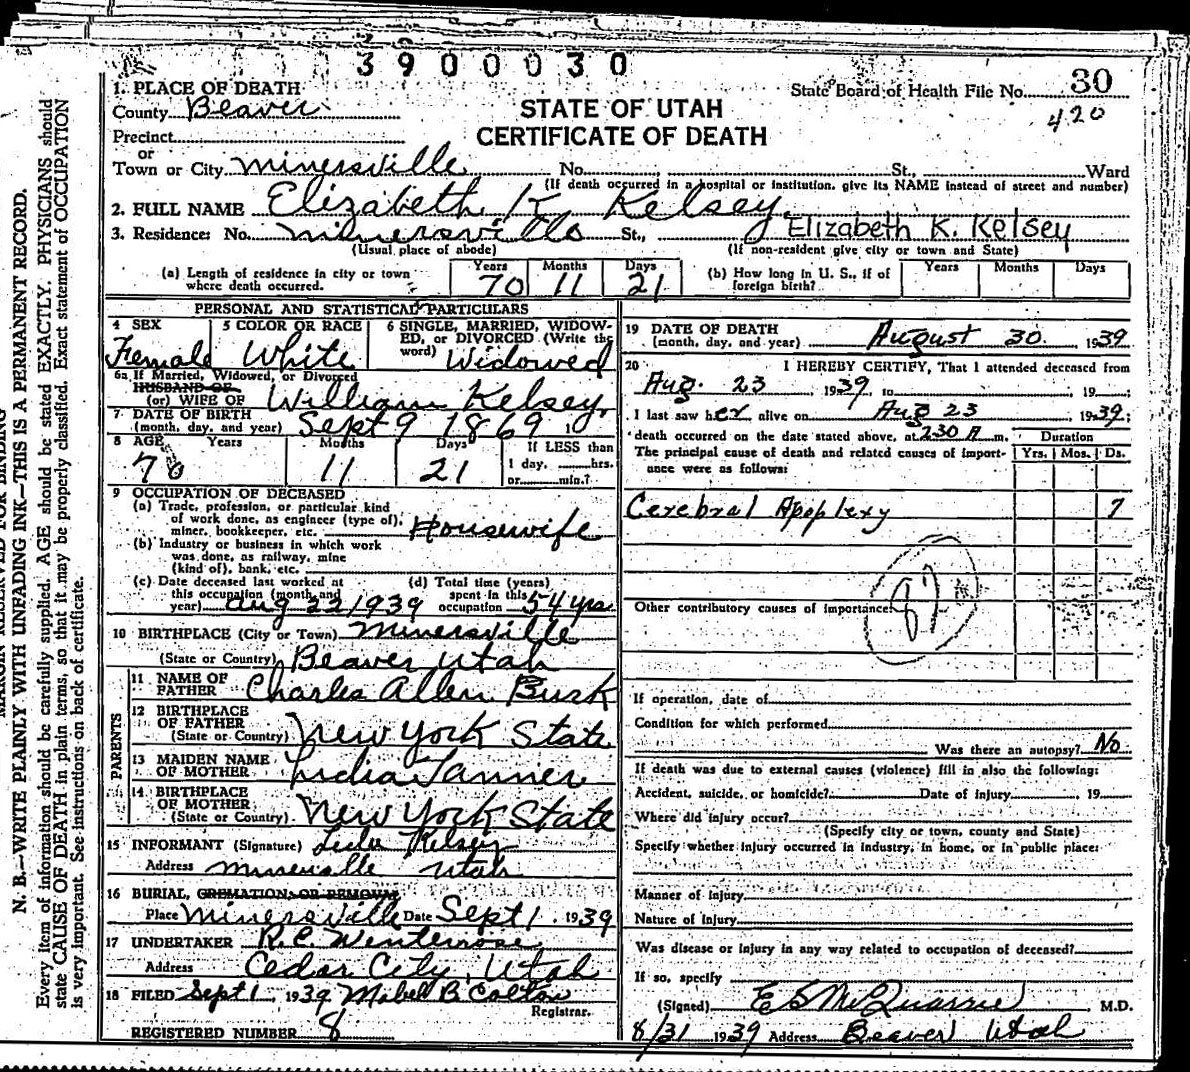 3900030
1. PLACE OF DEATH
State Board of Health File No. 30
County Beaver
STATE OF UTAH
420
CERTIFICATE OF DEATH
Precinct
or
Town or City Minersville No. St., Ward
(If death occurred in a hospital or institution, give its NAME instead of street and number)
2. FULL NAME Elizabeth K. Kelsey
Elizabeth K. Kelsey
3. Residence: No. Minersville St.,
(Usual place of abode) (If non-resident give city or town and State)
(a) Length of residence in city or town where death occurred. Years 70 Months 11 Days 21
(b) How long in U. S., if of foreign birth? Years Months Days
PERSONAL AND STATISTICAL PARTICULARS
4 SEX Female
5 COLOR OR RACE White
6 SINGLE, MARRIED, WIDOW-
ED, or DIVORCED (Write the
word) Widowed
6a If Married, Widowed, or Divorced
HUSBAND OF
(or) WIFE OF William Kelsey
7 DATE OF BIRTH
(month, day, and year) Sept 9 1869 1
8 AGE Years Months Days If LESS than
70 11 21 1 day, hrs.
or min.?
9 OCCUPATION OF DECEASED
(a) Trade, profession, or particular kind
of work done, as engineer (type of),
miner, bookkeeper, etc. Housewife
(b) Industry or business in which work
was done, as railway, mine
(kind of), bank, etc.
(c) Date deceased last worked at
this occupation (month and
year) Aug 22 1939
(d) Total time (years)
spent in this
occupation 54 yrs
10 BIRTHPLACE (City or Town) Minersville
(State or Country) Beaver Utah
PARENTS
11 NAME OF
FATHER Charles Allen Burk
12 BIRTHPLACE
OF FATHER
(State or Country) New York State
13 MAIDEN NAME
OF MOTHER Lidia Tanner
14 BIRTHPLACE
OF MOTHER
(State or Country) New York State
15 INFORMANT (Signature) Kelsey
Address Minersville Utah
16 BURIAL, CREMATION, OR REMOVAL
Place Minersville Date Sept 1, 1939
17 UNDERTAKER R.C. Winterrose
Address Cedar City, Utah
18 FILED Sept 1 1939 Mabell B. Colton
Registrar.
REGISTERED NUMBER 8
19 DATE OF DEATH
(month, day, and year) August 30. 1939
20 I HEREBY CERTIFY, That I attended deceased from
Aug. 23 1939, to 19
I last saw her alive on Aug 23 1939;
death occurred on the date stated above, at 230 A m.
The principal cause of death and related causes of import-
ance were as follows:
Duration
Yrs. Mos. Ds.
Cerebral Apoplexy 7
Other contributory causes of importance:
If operation, date of
Condition for which performed
Was there an autopsy? No
If death was due to external causes (violence) fill in also the following:
Accident, suicide, or homicide? Date of injury 19
Where did injury occur?
(Specify city or town, county and State)
Specify whether injury occurred in industry, in home, or in public place:
Manner of injury
Nature of injury
Was disease or injury in any way related to occupation of deceased?
If so, specify
(Signed) E S McQuarrie M.D.
8/31 1939 Address Beaver Utah
MARGIN RESERVED FOR BINDING
N. B.—WRITE PLAINLY WITH UNFADING INK—THIS IS A PERMANENT RECORD.
Every item of information should be carefully supplied. AGE should be stated EXACTLY. PHYSICIANS should
state CAUSE OF DEATH in plain terms, so that it may be properly classified. Exact statement of OCCUPATION
is very important. See instructions on back of certificate.